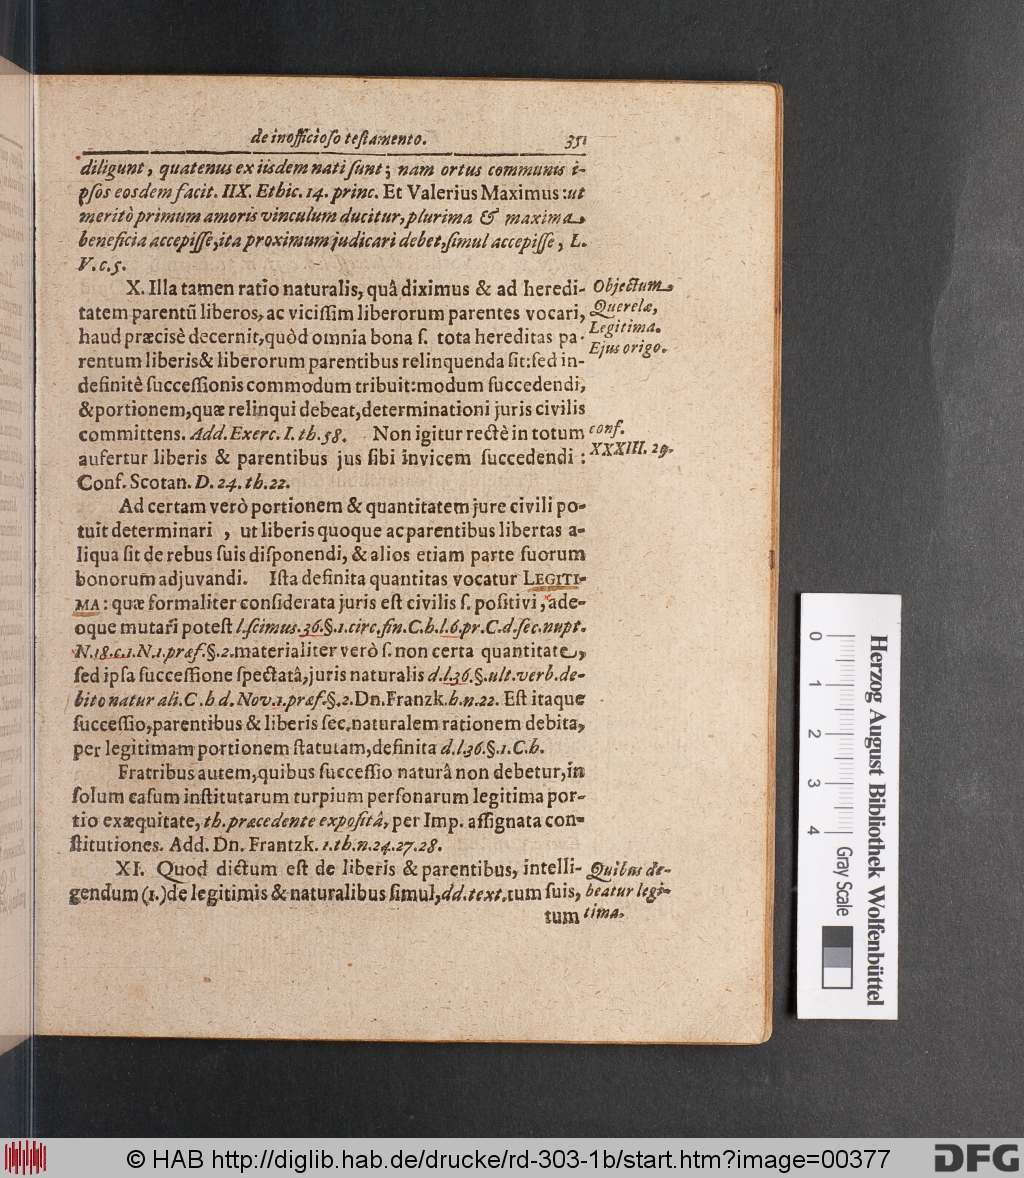 de inofficioso testamento. 351
diligunt, quatenus ex iisdem nati sunt; nam ortus communis i-
psos eosdem facit. IIX. Ethic. 14. princ. Et Valerius Maximus: ut
meritò primum amoris vinculum ducitur, plurima & maxima
beneficia accepisse, ita proximum judicari debet, simul accepisse, L.
V. c. 5.
X. Illa tamen ratio naturalis, quâ diximus & ad heredi-
tatem parentũ liberos, ac vicissim liberorum parentes vocari,
haud præcisè decernit, quòd omnia bona s. tota hereditas pa-
rentum liberis & liberorum parentibus relinquenda sit: sed in-
definitè successionis commodum tribuit: modum succedendi,
& portionem, quæ relinqui debeat, determinationi juris civilis
committens. Add. Exerc. I. th. 58. Non igitur rectè in totum
aufertur liberis & parentibus jus sibi invicem succedendi :
Conf. Scotan. D. 24. th. 22.
Objectum
Querelæ,
Legitima.
Ejus origo.
conf.
XXXIII. 29.
Ad certam verò portionem & quantitatem jure civili po-
tuit determinari , ut liberis quoque ac parentibus libertas a-
liqua sit de rebus suis disponendi, & alios etiam parte suorum
bonorum adjuvandi. Ista definita quantitas vocatur LEGITI-
MA: quæ formaliter considerata juris est civilis s. positivi, ade-
oque mutari potest l. scimus. 36. §. 1. circ. fin. C. h. l. 6. pr. C. d. sec. nupt.
N. 18. c. 1. N. 1. præf. §. 2. materialiter verò s. non certa quantitate,
sed ipsa successione spectatâ, juris naturalis d. l. 36. §. ult. verb. de-
bito naturali. C. h d. Nov. 1. præf. §. 2. Dn. Franzk. h. n. 22. Est itaque
successio, parentibus & liberis sec. naturalem rationem debita,
per legitimam portionem statutam, definita d. l. 36. §. 1. C. h.
Fratribus autem, quibus successio naturâ non debetur, in
solum casum institutarum turpium personarum legitima por-
tio exæquitate, th. præcedente expositâ, per Imp. assignata con-
stitutiones. Add. Dn. Frantzk. 1. th. n. 24. 27. 28.
XI. Quod dictum est de liberis & parentibus, intelli-
gendum (1.) de legitimis & naturalibus simul, dd. text. tum suis,
tum
Quibus de-
beatur legi-
tima.
0 1 2 3 4
Gray Scale
Herzog August Bibliothek Wolfenbüttel
© HAB http://diglib.hab.de/drucke/rd-303-1b/start.htm?image=00377
DFG